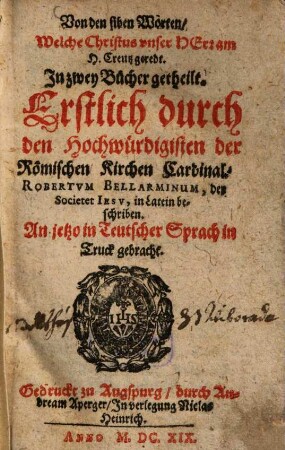 Von den siben Wörten/
Welche Christus vnser HErr am
H. Creutz geredt.
In zwey Bücher getheilt.
Erstlich durch
den Hochwürdigisten der
Römischen Kirchen Cardinal.
ROBERTVM BELLARMINVM, der
Societet IESV, in Latein be-
schriben.
An jetzo in Teutscher Sprach in
Truck gebracht.
IHS
Gedruckt zu Augspurg / durch An-
dream Aperger/In verlegung Niclas
Heinrich.
ANNO M. DC. XIX.